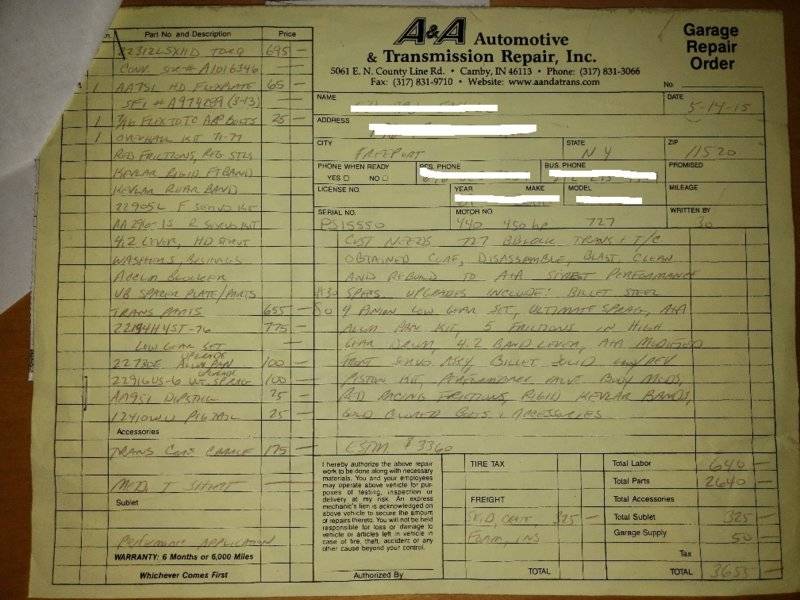 Part No and Description Price
22312LSXHD TORQ 695 —
CONV. SER # A1016346
1 AA751 HD FLEXPLATE 65 —
SFI # A974299 (3-13)
1 7/16 FLEX TO TC ARP BOLTS 25 —
1 OVERHAUL KIT 71-77
RED FRICTIONS, REG STLS
KEVLAR RIGID FT BAND
KEVLAR REAR BAND
22905L F SERVO KIT
R SERVO KIT
4.2 LEVER, HD STRUT
WASHERS, BUSHINGS
ACCUM BLOCKER
VB SPACER PLATE/PARTS
TRANS PARTS 655 —
22194H4ST-76 775 —
LOW GEAR SET
22730E ALUM PAN UPGRADE 100 —
22916US-6 ULT SPRAG UPGRADE 100 —
AA951 DIPSTICK 25 —
12410WU PIGTAIL 25 —
Accessories
TRANS CORE CHARGE 175 —
MED T SHIRT
Sublet
PERFORMANCE APPLICATION
WARRANTY: 6 Months or 6,000 Miles
Whichever Comes First
A&A Automotive
& Transmission Repair, Inc.
5061 E. N. County Line Rd. • Camby, IN 46113 • Phone: (317) 831-3066
Fax: (317) 831-9710 • Website: www.aandatrans.com
Garage
Repair
Order
No.
NAME DATE 5-14-15
ADDRESS
CITY FREEPORT STATE NY ZIP 11520
PHONE WHEN READY YES NO RES. PHONE BUS. PHONE PROMISED
LICENSE NO. YEAR MAKE MODEL MILEAGE
SERIAL NO. PS15550 MOTOR NO. 440 450 HP 727 WRITTEN BY 30
CUST NEEDS 727 B BLOCK TRANS & T/C
OBTAINED CORE, DISASSEMBLE, BLAST, CLEAN
AND REBUILD TO A&A STREET PERFORMANCE
SPECS. UPGRADES INCLUDE: BILLET STEEL
4 PINION LOW GEAR SET, ULTIMATE SPRAG, A&A
ALUM PAN KIT, 5 FRICTIONS IN HIGH
GEAR DRUM, 4.2 BAND LEVER, A&A MODIFIED
FRONT SERVO ASSY, BILLET SOLID
PISTON KIT, PERFORMANCE VALVE BODY MODS,
RED RACING FRICTIONS, RIGID KEVLAR BANDS,
ACCESSORIES
$3360
I hereby authorize the above repair
work to be done along with necessary
materials. You and your employees
may operate above vehicle for pur-
poses of testing, inspection or
delivery at my risk. An express
mechanic's lien is acknowledged on
above vehicle to secure the amount
of repairs thereto. You will not be held
responsible for loss or damage to
vehicle or articles left in vehicle in
case of fire, theft, accident or any
other cause beyond your control.
Authorized By
TIRE TAX
FREIGHT
SKID, CRATE, $325 —
FOAM, INS
TOTAL
Total Labor 640 —
Total Parts 2640 —
Total Accessories
Total Sublet 325 —
Garage Supply 50
Tax
TOTAL 3655 —